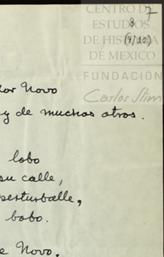 CENTRO DE
ESTUDIOS
DE HISTORIA
DE MEXICO
FUNDACIÓN
Carlos Slim
7
8
Novo
y de muchos otros.
lobo
su calle,
bobo.
e Novo,